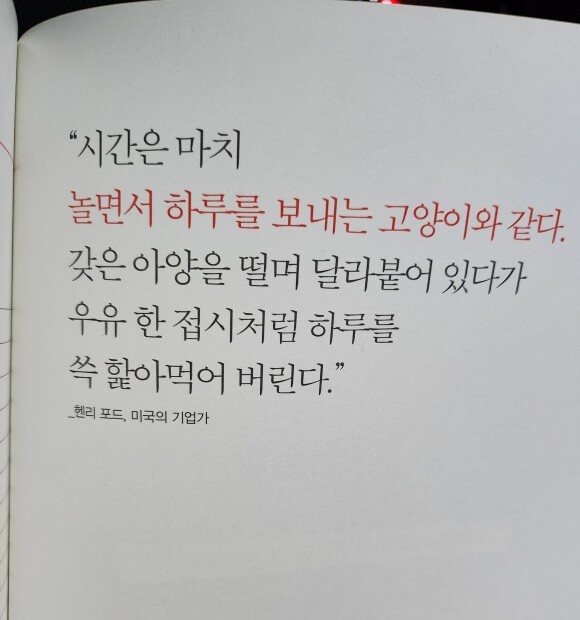 “시간은 마치
놀면서 하루를 보내는 고양이와 같다.
갖은 아양을 떨며 달라붙어 있다가
우유 한 접시처럼 하루를
쓱 핥아먹어 버린다.”
_헨리 포드, 미국의 기업가